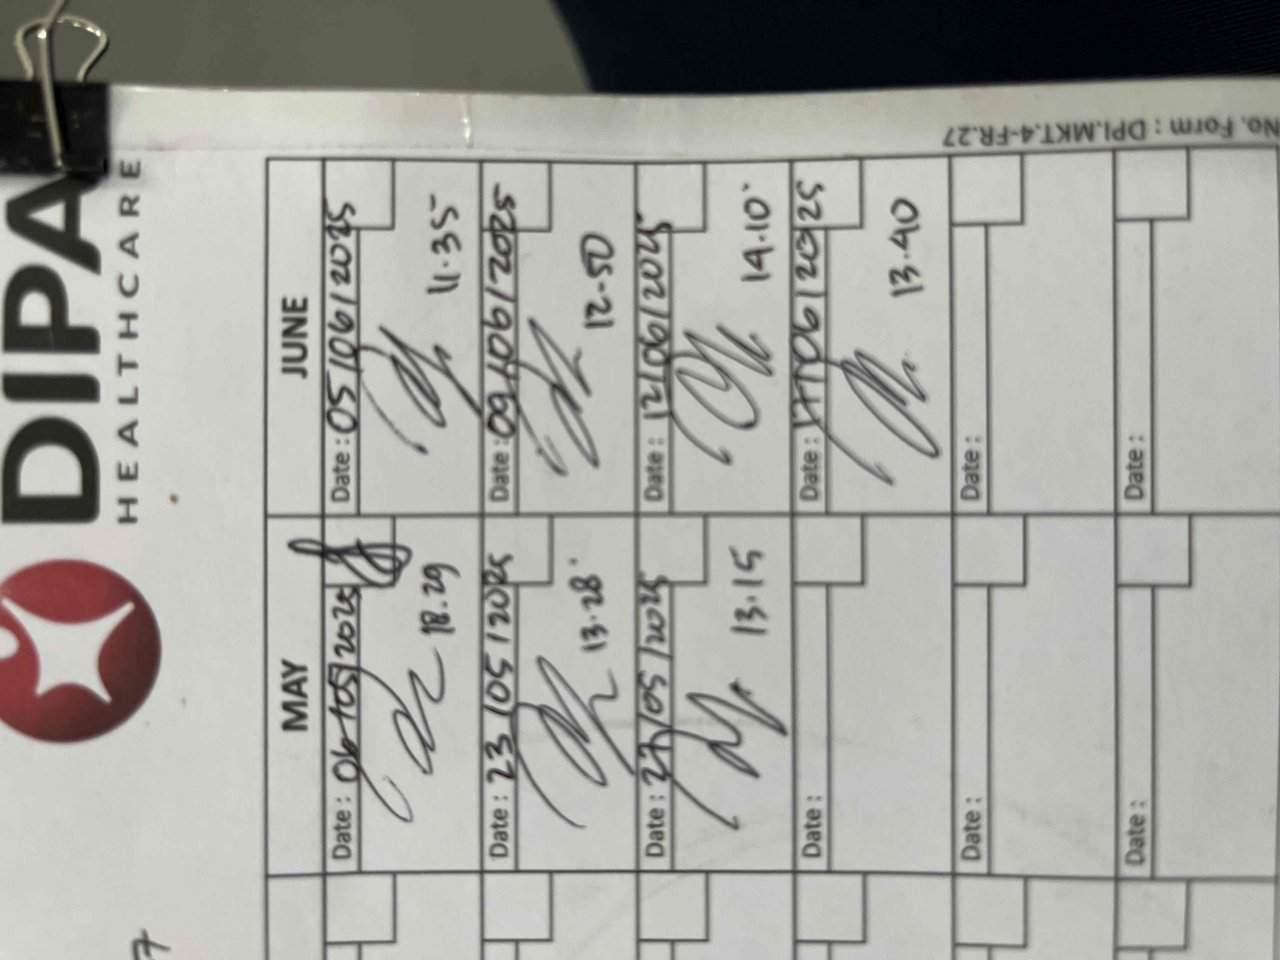 DIPA
HEALTHCARE
No. Form : DPI.MKT.4-FR.27
MAY
JUNE
Date : 06/05/2025
18.29
Date : 05/06/2025
11.35
Date : 23/05/2025
13.28
Date : 09/06/2025
12-50
Date : 27/05/2025
13.15
Date : 12/06/2025
14.10
Date :
Date : 17/06/2025
13.40
Date :
Date :
Date :
Date :
7